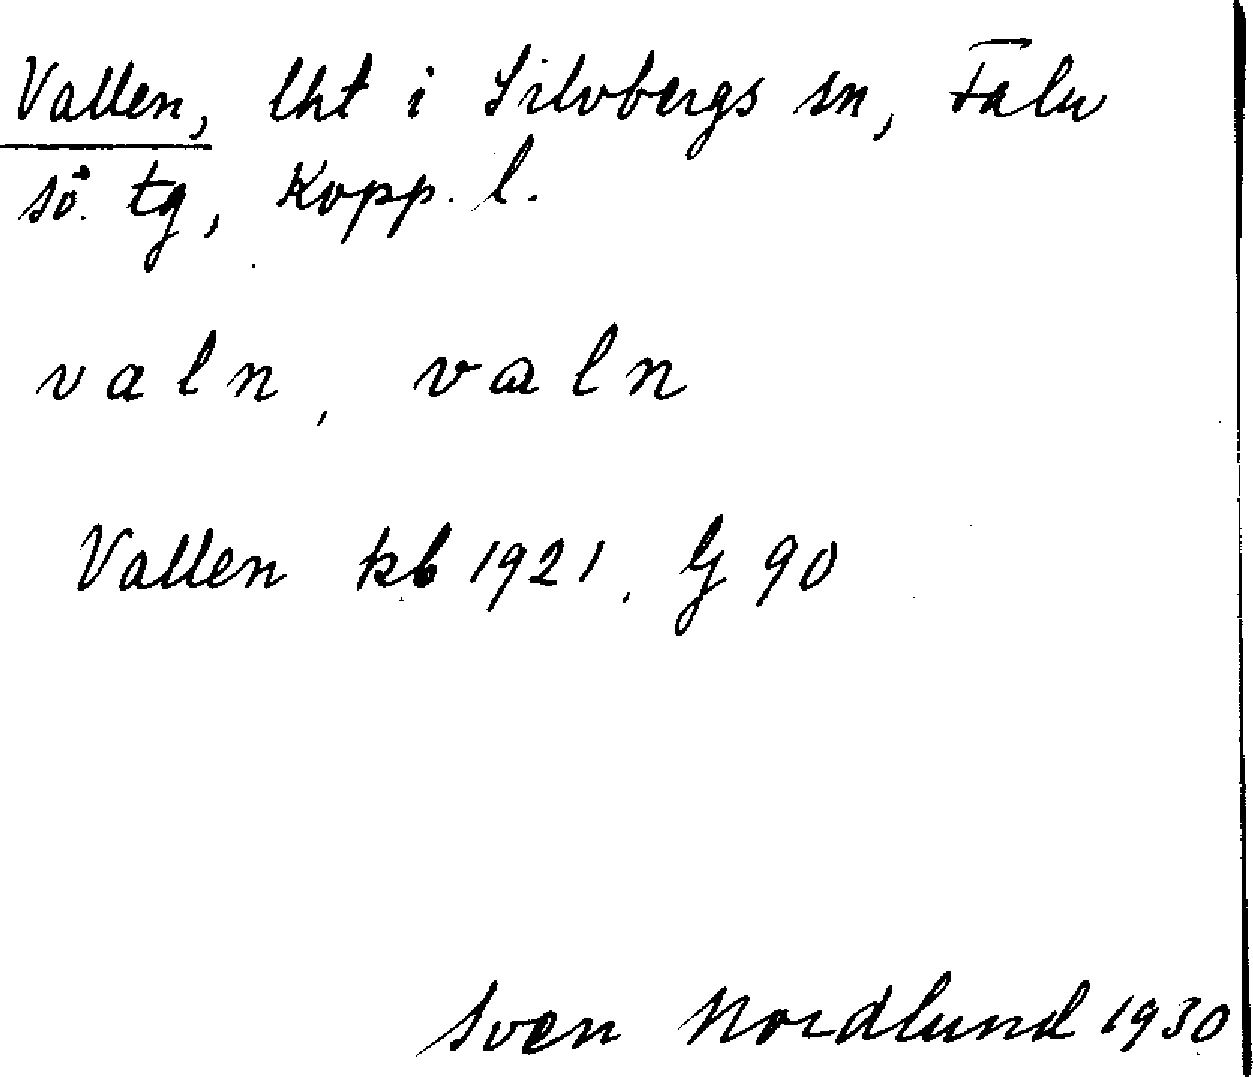 Vallen, lht i Silvbergs sn, Falu
sö. tg, Kopp. l.
valn, valn
Vallen kb 1921. G 90
Sven Nordlund 1930